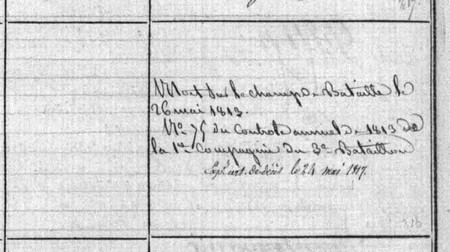 Mort sur le champ de Bataille le
26 mai 1813.
N° 75 du Controle annuel de 1813 de
la 1re Compagnie du 3e Bataillon
de décès le 24 mai 1817.